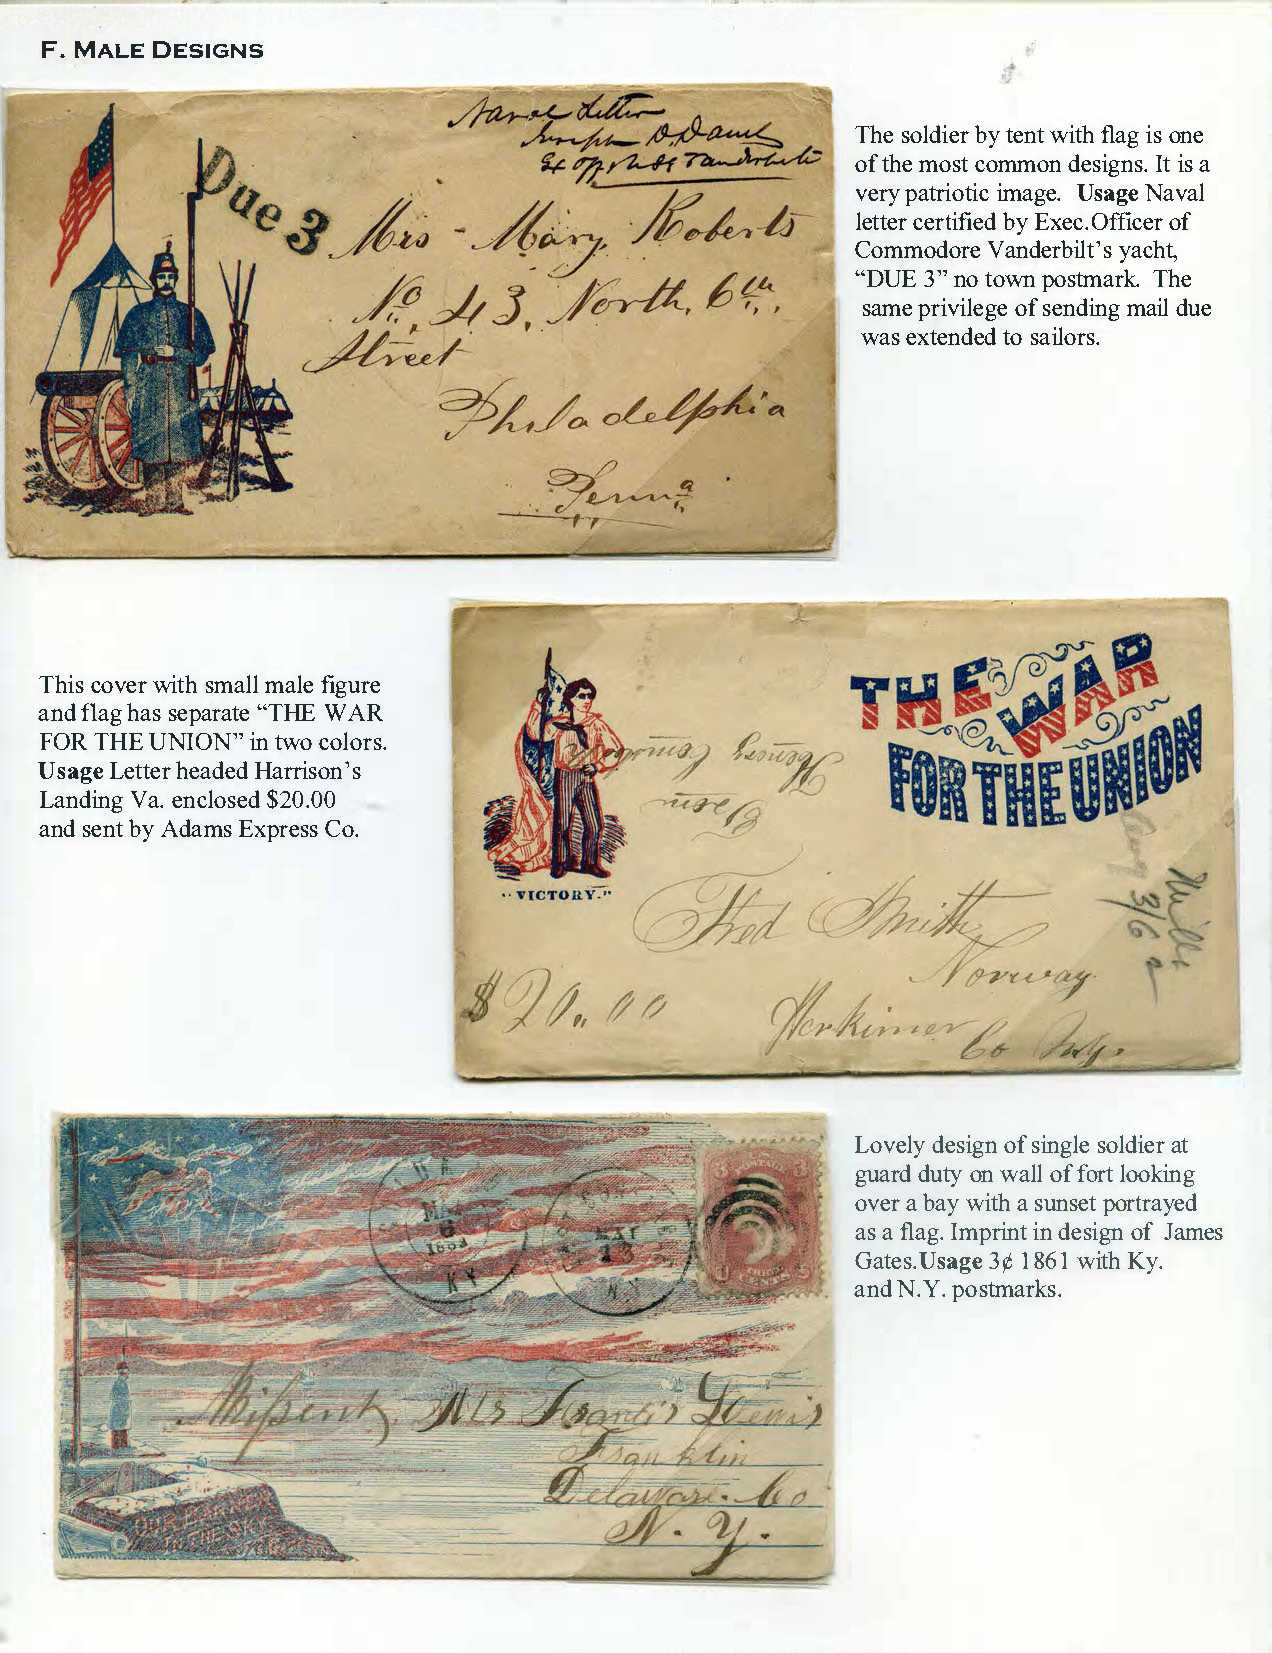 F. MALE DESIGNS
Naval Letter
Joseph D. Daniel
Ex off U SS Vanderbilt
Due 3
Mrs - Mary. Roberts
No. 43, North, 6th,
Street
Philadelphia
Penna
The soldier by tent with flag is one
of the most common designs. It is a
very patriotic image. Usage Naval
letter certified by Exec.Officer of
Commodore Vanderbilt's yacht,
“DUE 3” no town postmark. The
same privilege of sending mail due
was extended to sailors.
This cover with small male figure
and flag has separate “THE WAR
FOR THE UNION” in two colors.
Usage Letter headed Harrison's
Landing Va. enclosed $20.00
and sent by Adams Express Co.
THE WAR
FOR THE UNION
“VICTORY.”
From
Fred Smith
Norway
$20,,00
Herkimer
Co N.Y.
Lovely design of single soldier at
guard duty on wall of fort looking
over a bay with a sunset portrayed
as a flag. Imprint in design of James
Gates.Usage 3¢ 1861 with Ky.
and N.Y. postmarks.
MAY
6
KY
MAY
13
N.Y
U.S.
POSTAGE
3 3
Missent. Mrs Francis Lewis
Franklin
Delaware. Co
N. Y.
OUR BANNER
IN THE SKY